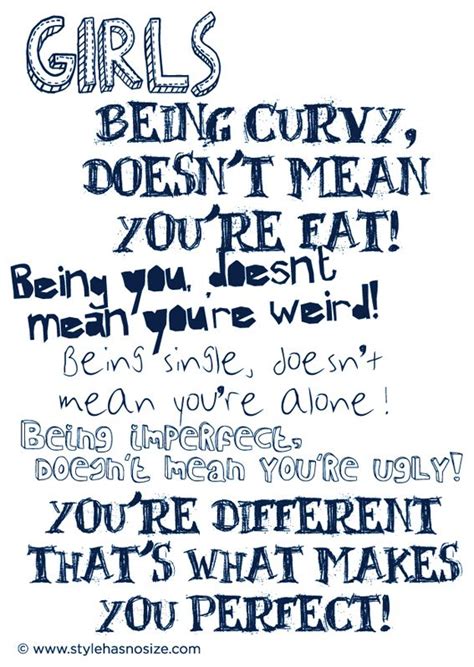 GIRLS
BEING CURVY,
DOESN'T MEAN
YOU'RE FAT!
Being you, doesnt
mean you're weird!
Being single, doesn't
mean you're alone!
Being imperfect,
doesn't mean you're ugly!
YOU'RE DIFFERENT
THAT'S WHAT MAKES
YOU PERFECT!
© www.stylehasnosize.com